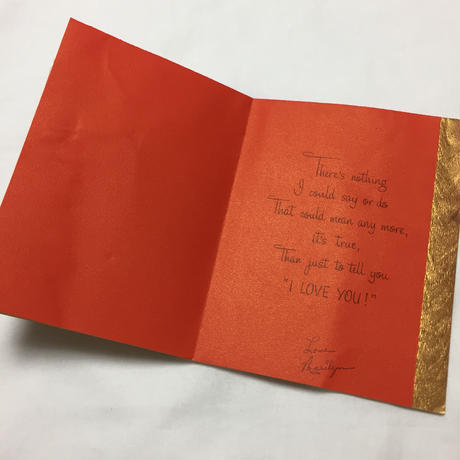 There's nothing
I could say or do
That could mean any more,
it's true,
Than just to tell you
"I LOVE YOU!"
Love
Marilyn